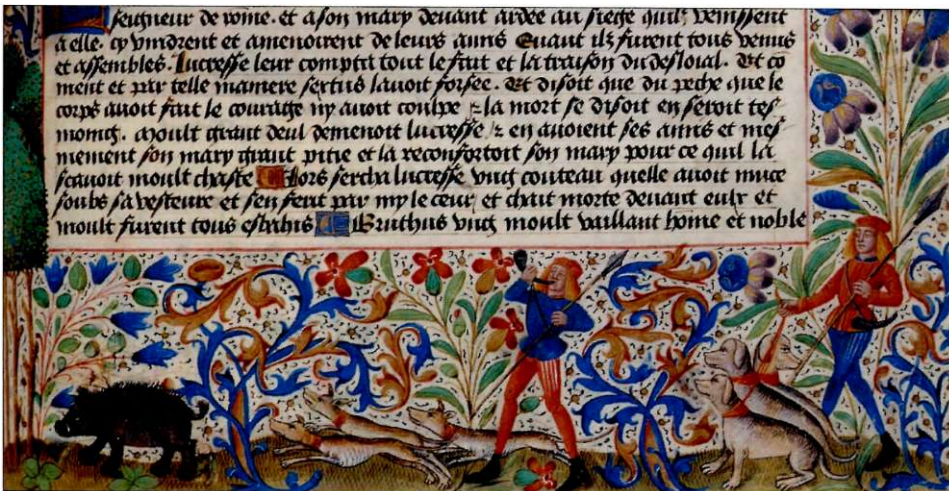 seigneur de rome. et a son mary devant ardee au siege quilz venissent
a elle. cy vindrent et amenoirent de leurs amis Quant ilz furent tous venus
et assembles. lucresse leur compta tout le fait et la traison du desloial. Et co
ment et par telle maniere sextus lavoit forsee. Et disoit que du peche que le
corps avoit fait le courage ny avoit coulpe & la mort se disoit en seroit tes
moing. Moult grant deul demenoit lucresse / & en avoient ses amis et mes
mement son mary grant pitie et la reconfortoit son mary pour ce quil la
scavoit moult chaste Lors sercha lucresse ung couteau quelle avoit muce
soubs sa vesteure et sen feri par my le ceur et chait morte devant eulx et
moult furent tous esbahis Bruthus ung moult vaillant home et noble